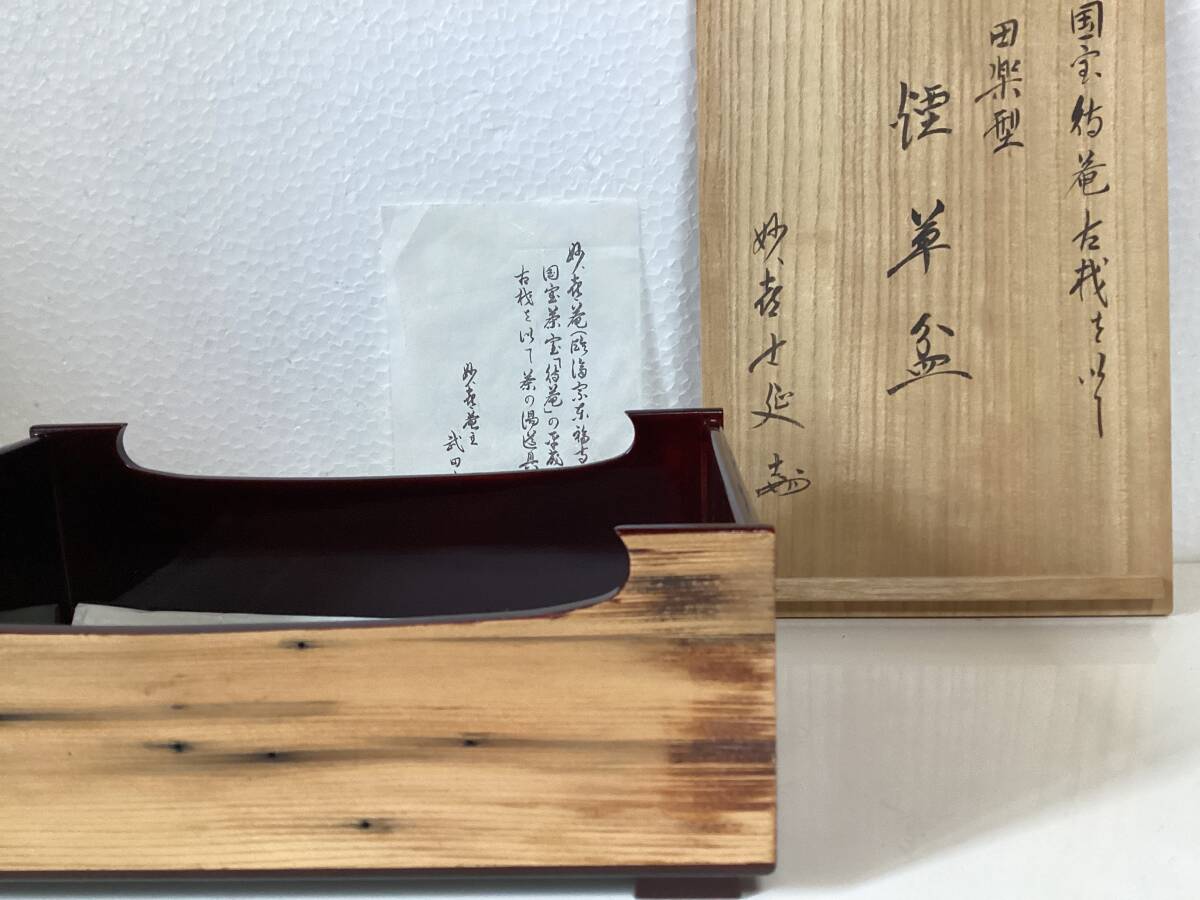 国宝待庵古材を以て
田楽型
煙草盆
妙喜士延
妙喜庵(臨済宗東福寺
国宝茶室「待庵」の平成
古材を以て茶の湯道具
妙喜庵主
武田